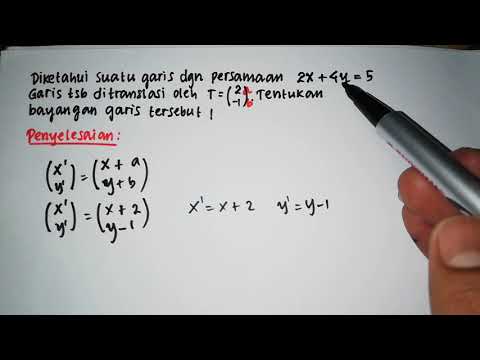 Diketahui suatu garis dgn persamaan 2x + 4y = 5
Garis tsb ditranslasi oleh T = (2 a -1 b). Tentukan
bayangan garis tersebut !
Penyelesaian:
(x' y') = (x + a y + b)
(x' y') = (x + 2 y - 1) x' = x + 2 y' = y - 1